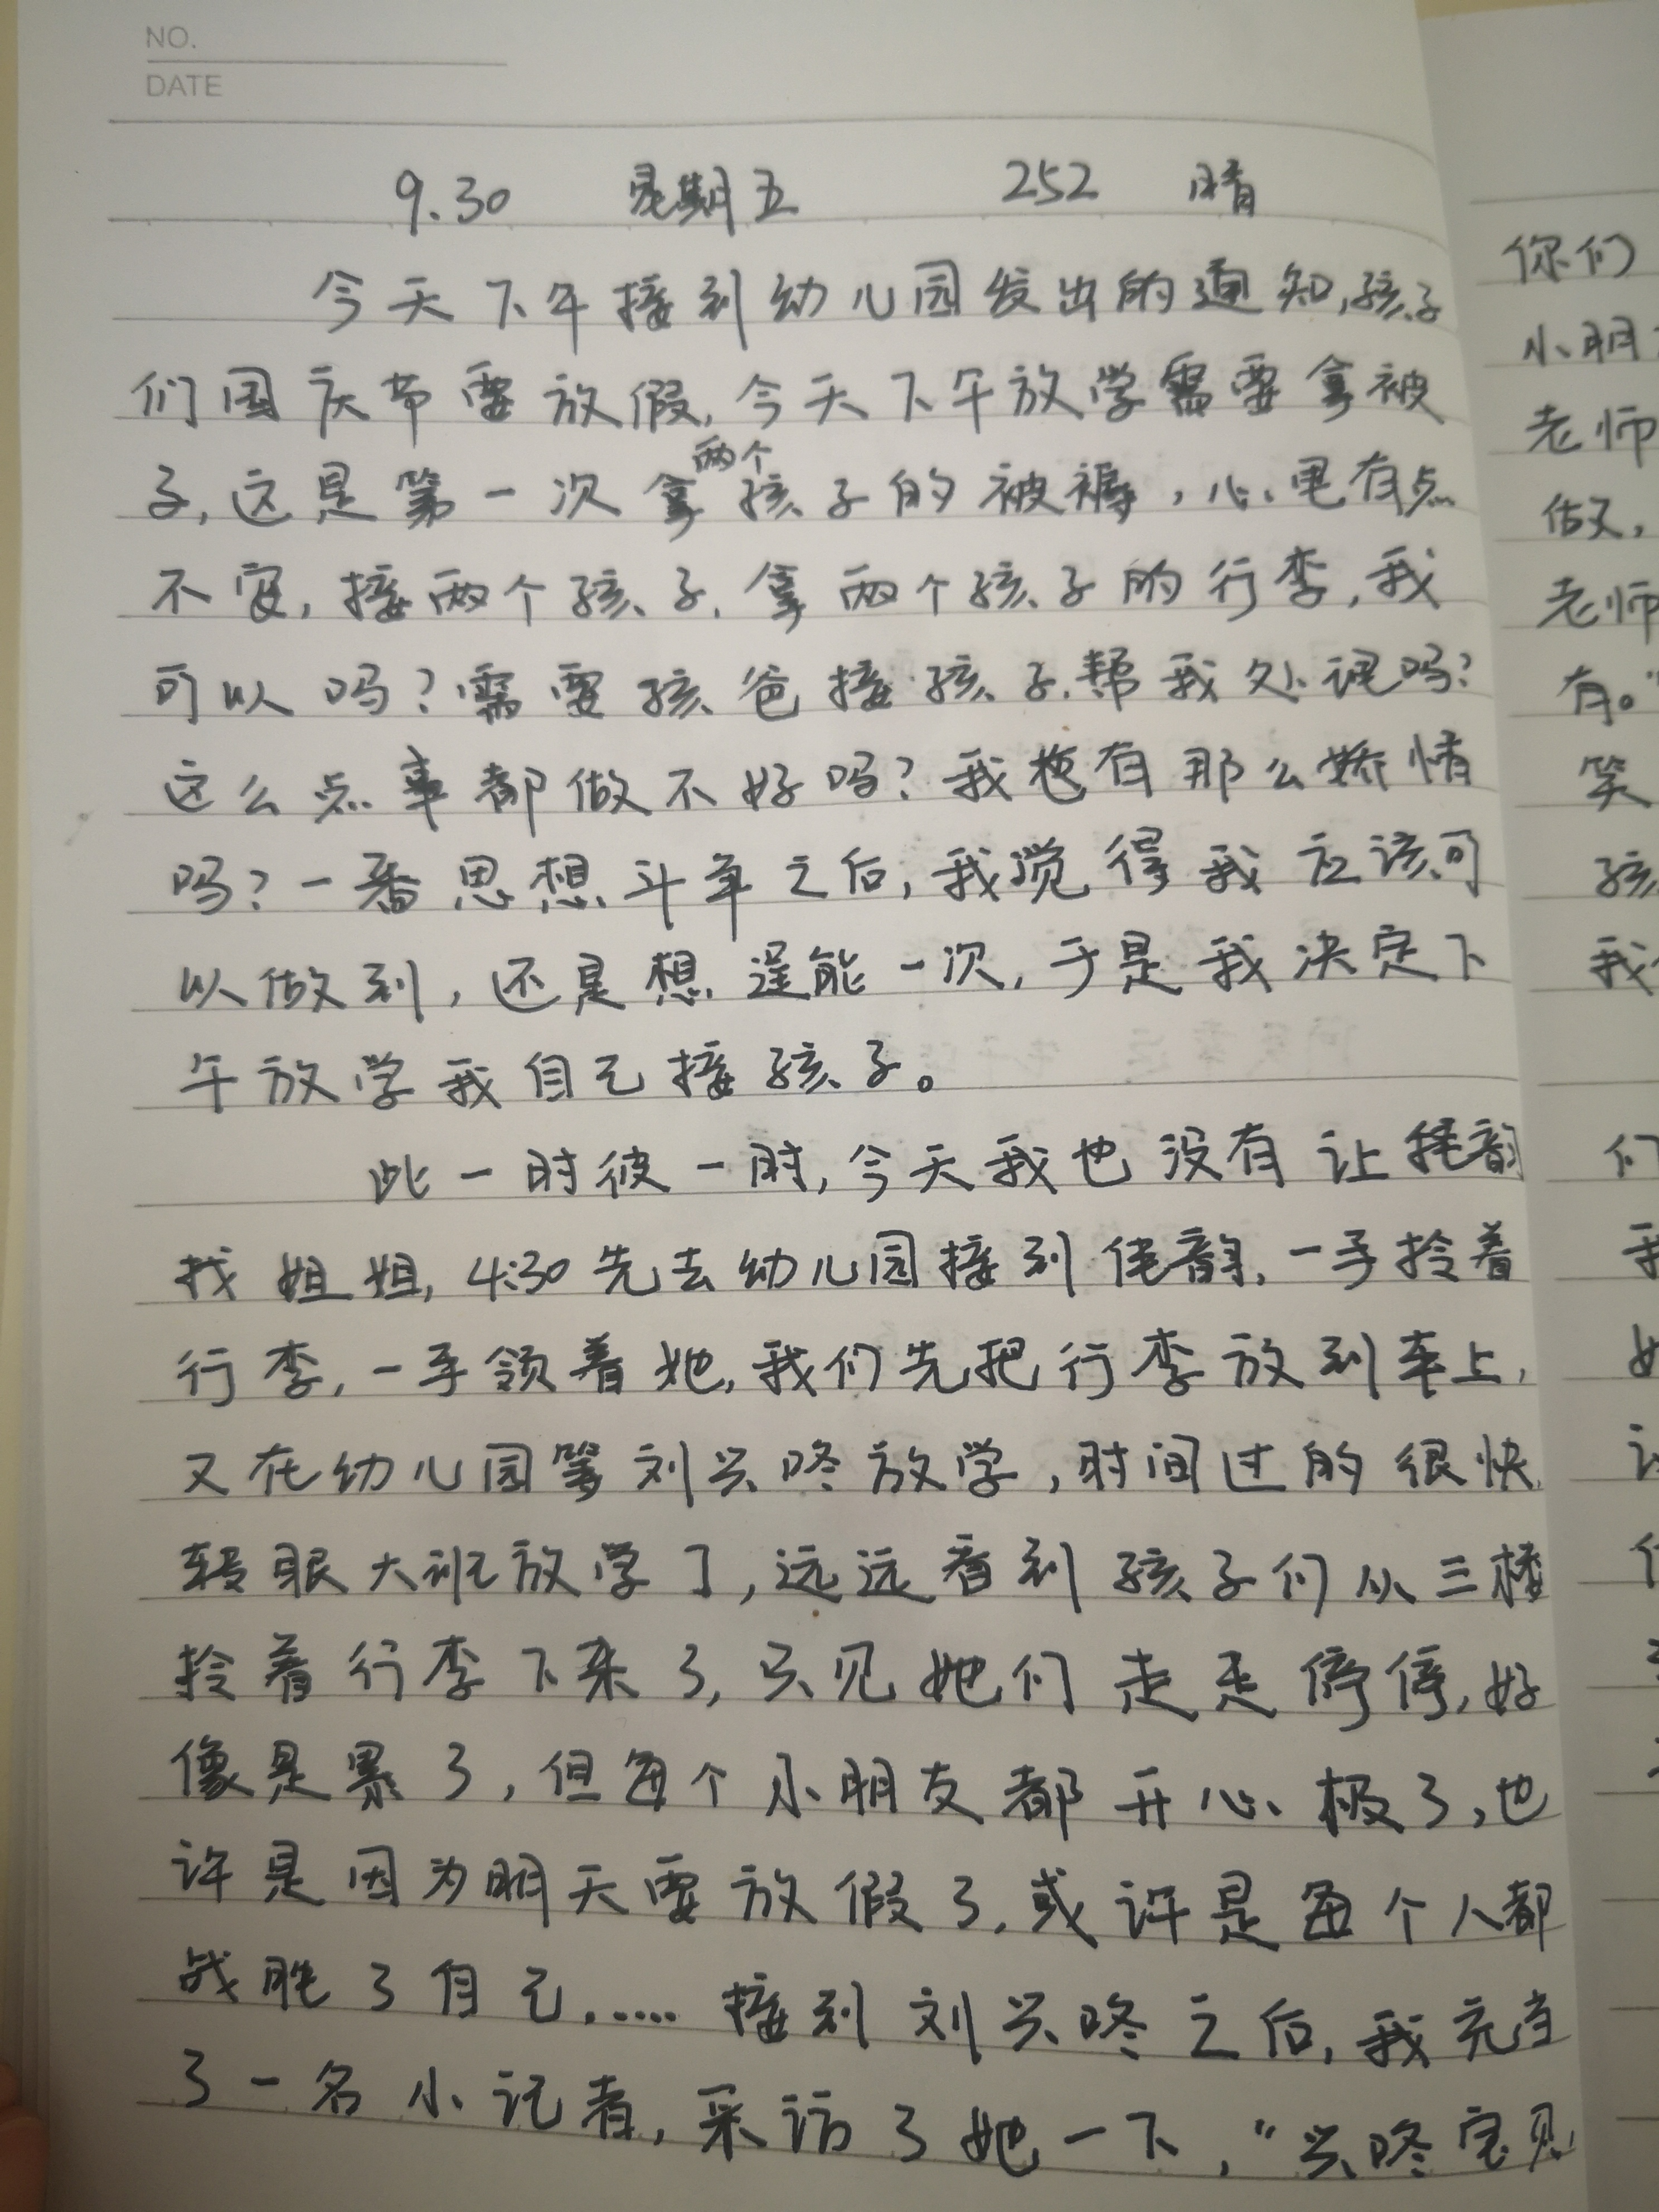 NO.
DATE
9.30 星期五 252 晴
今天下午接到幼儿园发出的通知,孩子
们国庆节要放假,今天下午放学需要拿被
子,这是第一次拿两个孩子的被褥,心里有点
不安,接两个孩子,拿两个孩子的行李,我
可以吗?需要孩爸接孩子,帮我处理吗?
这么点事都做不好吗?我也有那么娇情
吗?一番思想斗争之后,我觉得我应该可
以做到,还是想逞能一次,于是我决定下
午放学我自己接孩子。
此一时彼一时,今天我也没有让佬韵
找姐姐,4:30先去幼儿园接到佬韵,一手拎着
行李,一手领着她,我们先把行李放到车上,
又在幼儿园等刘兴咚放学,时间过的很快
转眼大班放学了,远远看到孩子们从三楼
拎着行李下来了,只见她们走走停停,好
像是累了,但每个小朋友都开心极了,也
许是因为明天要放假了,或许是每个人都
战胜了自己,.....接到刘兴咚之后,我充当
了一名小记者,采访了她一下,“兴咚宝贝
你们
小朋
老师
做,
老师
有。"
笑
孩
我
们
我